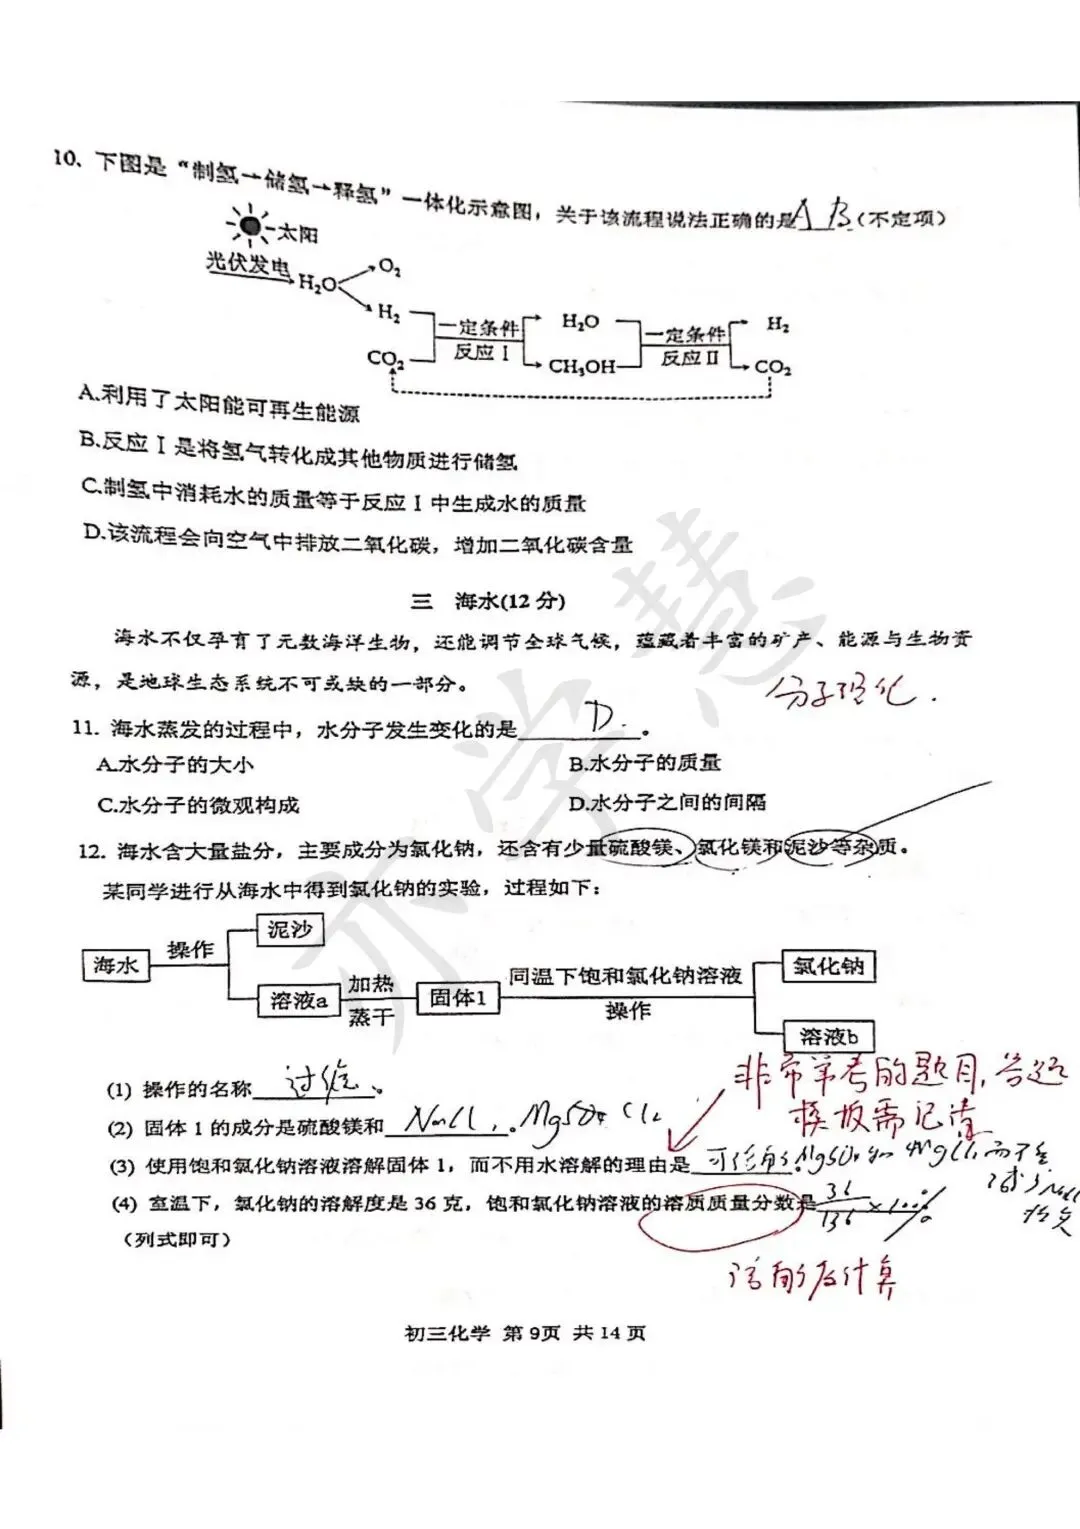 10、下图是“制氢→储氢→释氢”一体化示意图，关于该流程说法正确的是AB.(不定项)
太阳
光伏发电 H₂O O₂
H₂ 一定条件 H₂O 一定条件 H₂
CO₂ 反应Ⅰ CH₃OH 反应Ⅱ CO₂
A.利用了太阳能可再生能源
B.反应Ⅰ是将氢气转化成其他物质进行储氢
C.制氢中消耗水的质量等于反应Ⅰ中生成水的质量
D.该流程会向空气中排放二氧化碳，增加二氧化碳含量
三 海水(12分)
海水不仅孕育了无数海洋生物，还能调节全球气候，蕴藏着丰富的矿产、能源与生物资
源，是地球生态系统不可或缺的一部分。
分子 化.
11. 海水蒸发的过程中，水分子发生变化的是 D. 。
A.水分子的大小 B.水分子的质量
C.水分子的微观构成 D.水分子之间的间隔
12. 海水含大量盐分，主要成分为氯化钠，还含有少量硫酸镁、氯化镁和泥沙等杂质。
某同学进行从海水中得到氯化钠的实验，过程如下：
海水 操作 泥沙
溶液a 加热 蒸干 固体1 同温下饱和氯化钠溶液 操作 氯化钠
溶液b
非常常考的题目,答题
模板需记清
(1) 操作的名称 过滤 。
(2) 固体1的成分是硫酸镁和 NaCl, MgCl₂ 。MgSO₄
(3) 使用饱和氯化钠溶液溶解固体1，而不用水溶解的理由是 可溶解MgSO₄和MgCl₂而不会
减少NaCl
(4) 室温下，氯化钠的溶解度是36克，饱和氯化钠溶液的溶质质量分数是 36/136×100%
(列式即可)
溶解度计算
初三化学 第9页 共14页
亦学慧